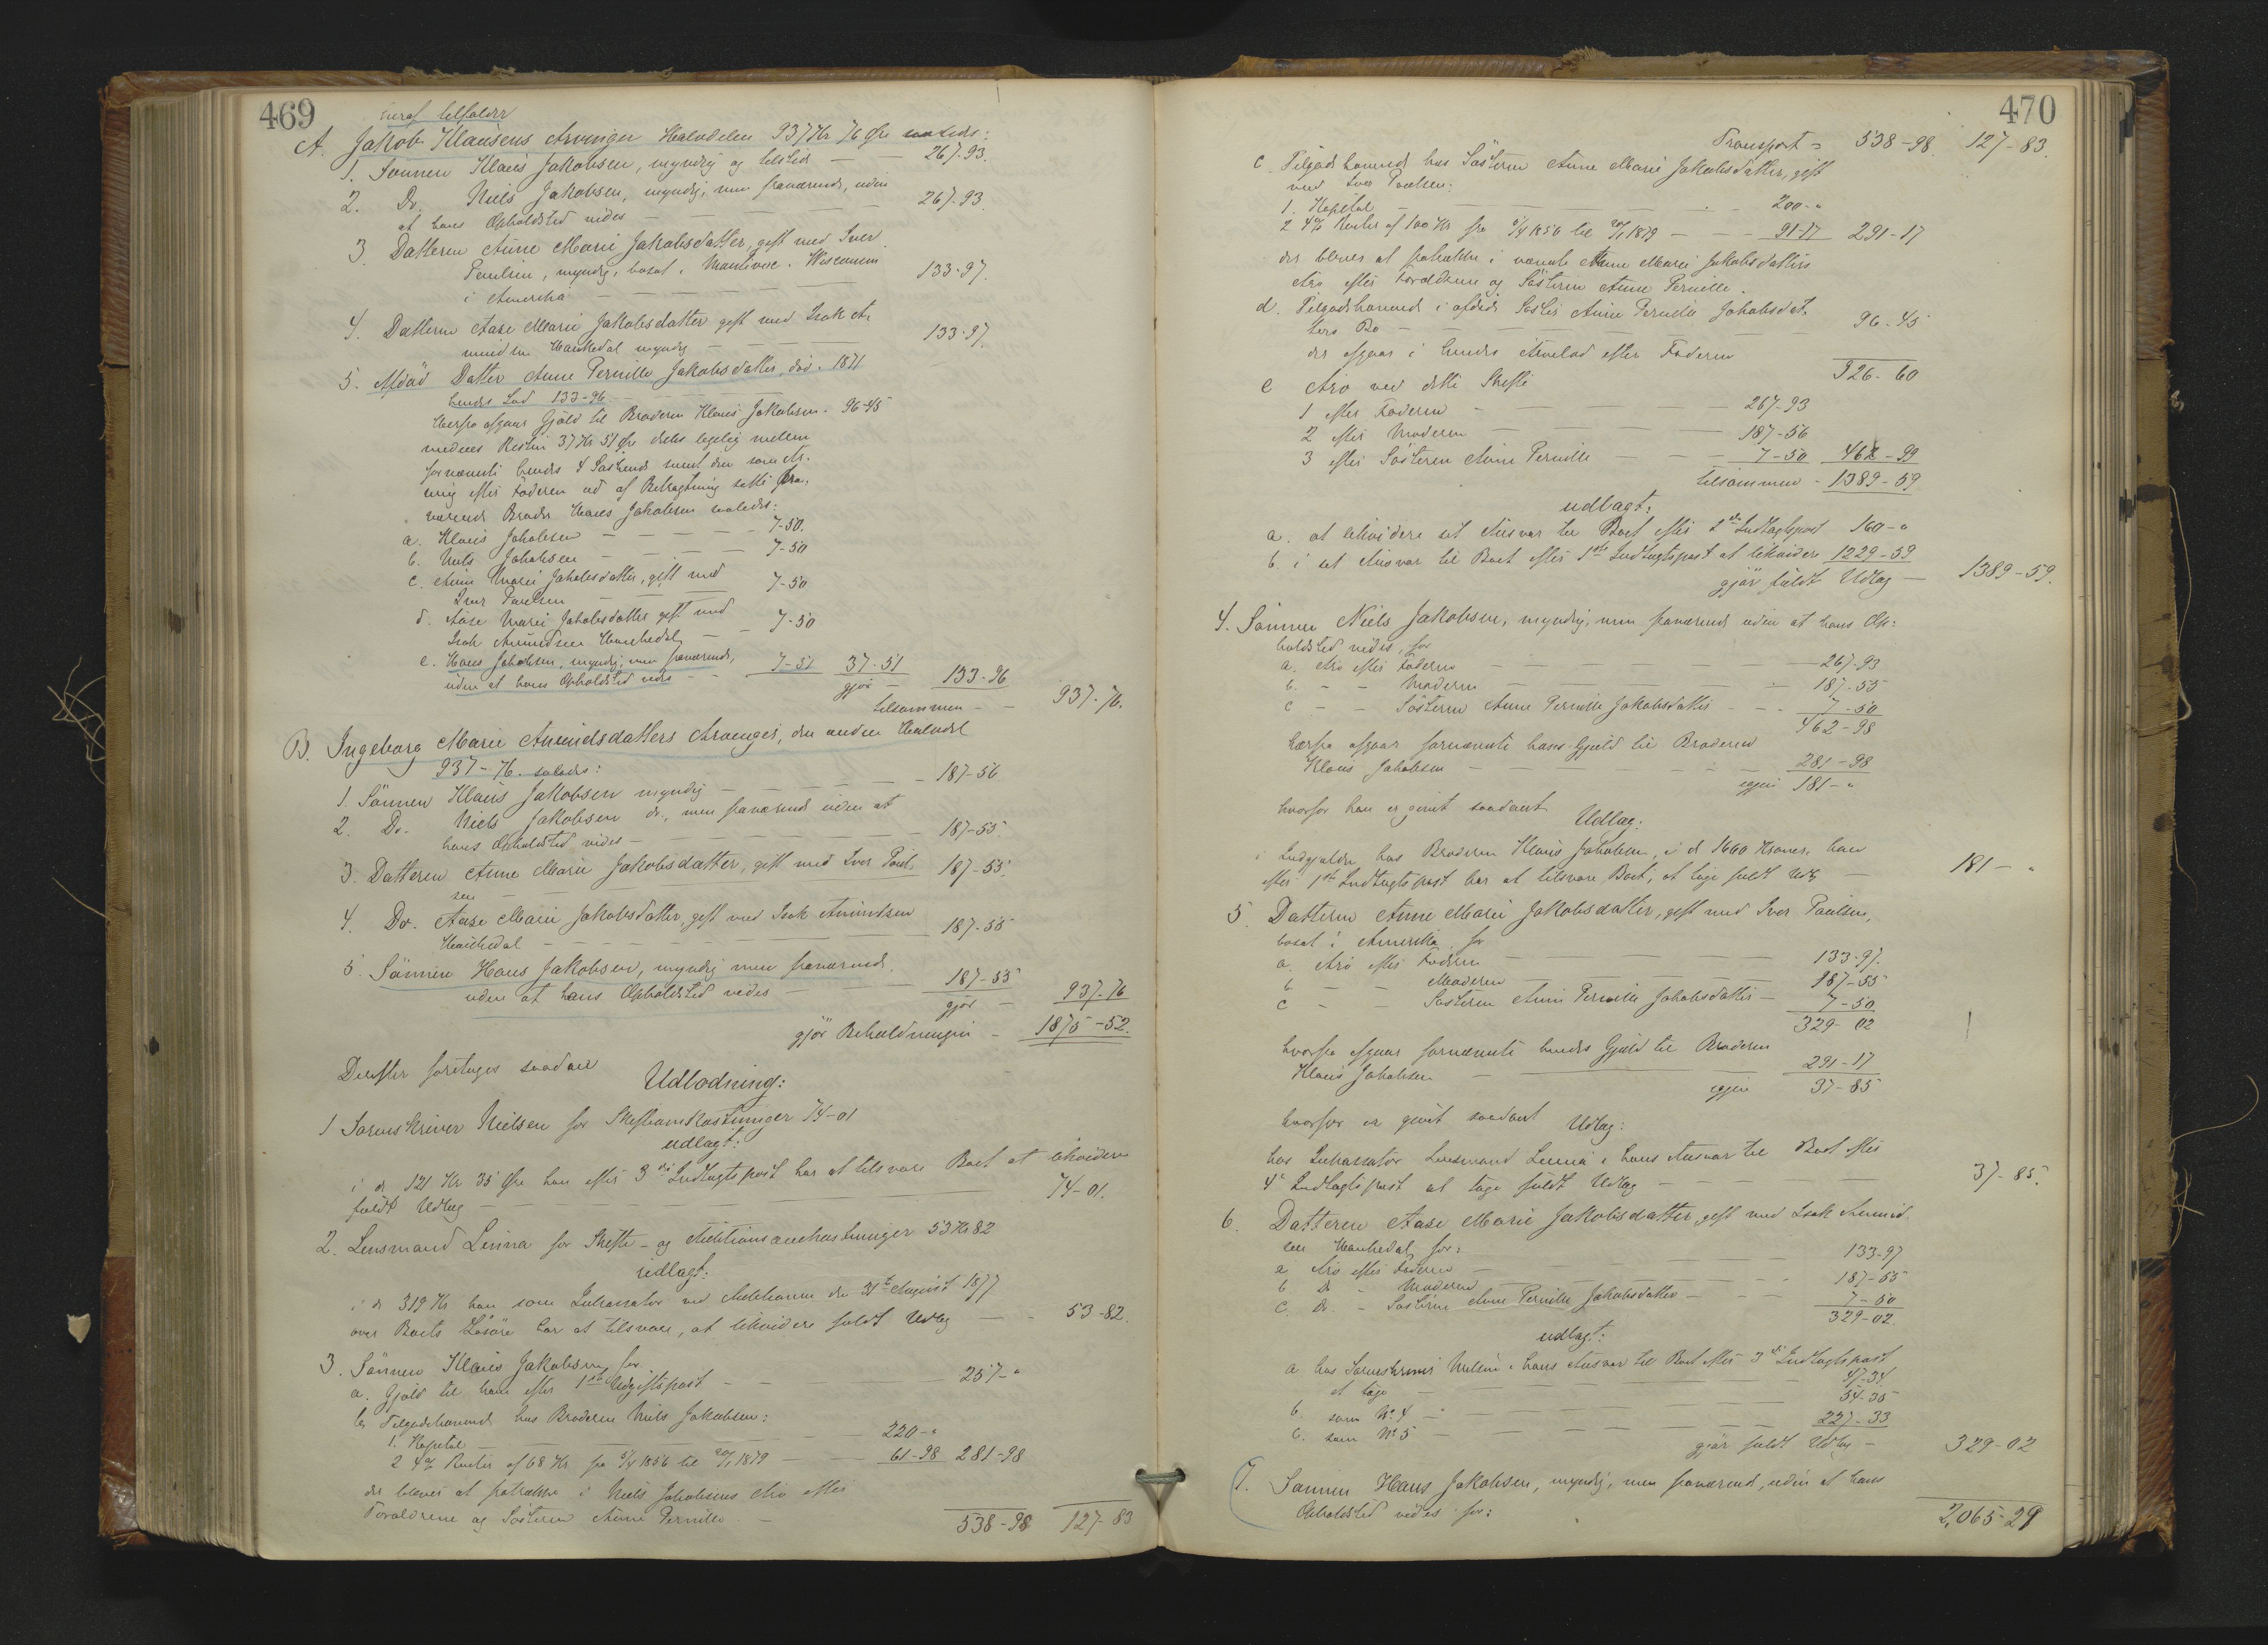 469
heraf tilfalder
A. Jakob Klausens Arvinger Halvdelen 937 Kr 76 Øre saaledes:
1. Sønnen Klaus Jakobsen, myndig og tilsted — — 267-93.
2. Do. Niels Jakobsen, myndig, men fraværende, uden
at hans Opholdsted vides — — — 267-93.
3. Datteren Anne Marie Jakobsdatter, gift med Iver
Paulsen, myndig, bosat i Wisconsin
i Amerika — — — 133-97.
4. Datteren Aase Marie Jakobsdatter gift med Isak A-
mundsen Haukedal myndig — — — 133-97.
5. Afdød Datter Anne Pernille Jakobsdatter, død i 1871
hendes Lod 133-96 — — —
Herfra afgaar Gjæld til Broderen Klaus Jakobsen. 96-45
medens Resten 37 Kr 51 Øre deles ligelig mellem
fornævnte hendes 4 Søskende samt den som Ar-
ving efter Faderen ud af Betragtning satte fra-
værende Broder Hans Jakobsen saaledes:
a. Klaus Jakobsen — — — 7-50.
b. Niels Jakobsen — — — 7-50
c. Anne Marie Jakobsdatter, gift med
Iver Paulsen — — — 7-50
d. Aase Marie Jakobsdatter gift med
Isak Amundsen Haukedal — — 7-50
e. Hans Jakobsen, myndig, men fraværende,
uden at hans Opholdsted vides — — 7-51 37-51
gjør — 133-96
tilsammen — — 937-76.
B. Ingeborg Marie Amundsdatters Arvinger, den anden Halvdel
937-76. saaledes:
1. Sønnen Klaus Jakobsen myndig — — — 187-56
2. Do. Niels Jakobsen do., men fraværende uden at
hans Opholdsted vides — — — 187-55.
3. Datteren Anne Marie Jakobsdatter, gift med Iver Paul-
sen — 187-55.
4. Do. Aase Marie Jakobsdatter, gift med Isak Amundsen
Haukedal — — — 187-55
5. Sønnen Hans Jakobsen, myndig men fraværende,
uden at hans Opholdsted vides — — — 187-55
gjør — 937-76
gjør Beholdningen — 1875-52.
Derefter foretages saadan
Udlodning:
1 Sorenskriver Nielsen for Skifteomkostninger 74-01
udlagt:
i de 121 Kr 35 Øre han efter 3die Indtægtspost har at tilsvare Boet at likvidere
fuldt Udlæg — — — 74-01.
2. Lensmand Linna for Skifte- og Auktionsomkostninger 53 Kr 82
udlagt:
i de 319 Kr han som Inkassator ved Auktionen den 31te August 1877
over Boets Løsøre har at tilsvare, at likvidere fuldt Udlæg — — 53-82.
3. Sønnen Klaus Jakobsen for
a. Gjæld til ham efter 1ste Udgiftspost — — 257-"
b. Tilgodehavende hos Broderen Niels Jakobsen:
1. Kapital — — — 220-"
2 4% Renter af 68 Kr. fra 5/4 1856 til 20/1 1879 — — 61-98 281-98
der bliver at fratrække i Niels Jakobsens Arv efter
Forældrene og Søsteren Anne Pernille — 538-98 127-83
470
Transport = 538-98. 127-83.
c. Tilgodehavende hos Søsteren Anne Marie Jakobsdatter, gift
med Iver Paulsen:
1. Kapital — — — 200-"
2 4% Renter af 100 Kr fra 5/4 1856 til 20/1 1879 — — 91-17 291-17
der bliver at fratrække i nævnte Anne Marie Jakobsdatters
Arv efter Forældrene og Søsteren Anne Pernille.
d. Tilgodehavende i afdøde Søster Anne Pernille Jakobsdat-
ters Bo — — — 96-45
der afgaar i hendes Arvelod efter Faderen
926-60
e Arv ved dette Skifte
1 efter Faderen — — — 267-93
2 efter Moderen — — — 187-56
3 efter Søsteren Anne Pernille — — — 7-50 462-99
tilsammen - 1389-59
udlagt:
a. at likvidere sit Ansvar til Boet efter 2den Indtægtspost 160-"
b. i sit Ansvar til Boet efter 1ste Indtægtspost at likvidere 1229-59
gjør fuldt Udlæg — 1389-59.
4. Sønnen Niels Jakobsen, myndig, men fraværende uden at hans Op-
holdsted vides, for
a. Arv efter Faderen — — — 267-93
b. - - Moderen — — — 187-55
c - - Søsteren Anne Pernille Jakobsdatter — — 7-50
462-98
hærfra afgaar fornævnte hans Gjæld til Broderen
Klaus Jakobsen — — — 281-98
igjen 181-"
hvorfor han er givet saadant
Udlæg:
i Indgjælden hos Broderen Klaus Jakobsen, i de 1660 Kroner han
efter 1ste Indtægtspost har at tilsvare Boet, at tage fuldt Udlæg — 181-"
5. Datteren Anne Marie Jakobsdatter, gift med Iver Paulsen,
bosat i Amerika for
a. Arv efter Faderen — — — 133-97.
b. - - Moderen — — — 187-55
c - - Søsteren Anne Pernille Jakobsdatter — 7-50
329-02
hvorfra afgaar fornævnte hendes Gjæld til Broderen
Klaus Jakobsen — — — 291-17
igjen 37-85
hvorfor er givet saadant Udlæg:
hos Inkassator Lensmand Linna i hans Ansvar til Boet efter
4de Indtægtspost at tage fuldt Udlæg — — — 37-85.
6. Datteren Aase Marie Jakobsdatter, gift med Isak Amund-
sen Haukedal for:
a Arv efter Faderen — — — 133-97
b Do - Moderen — — — 187-55
c. Do. - Søsteren Anne Pernille Jakobsdatter — — 7-50
329-02.
udlagt:
a hos Sorenskriver Nielsen i hans Ansvar til Boet efter 3die Indtægtspost
at tage — — — 47-34.
b. som No 4 — — — 54-35
c. som No 5 — — — 227-33
gjør fuldt Udlæg — 329-02
7. Sønnen Hans Jakobsen, myndig, men fraværende, uden at hans
Opholdsted vides for:
2,065-29